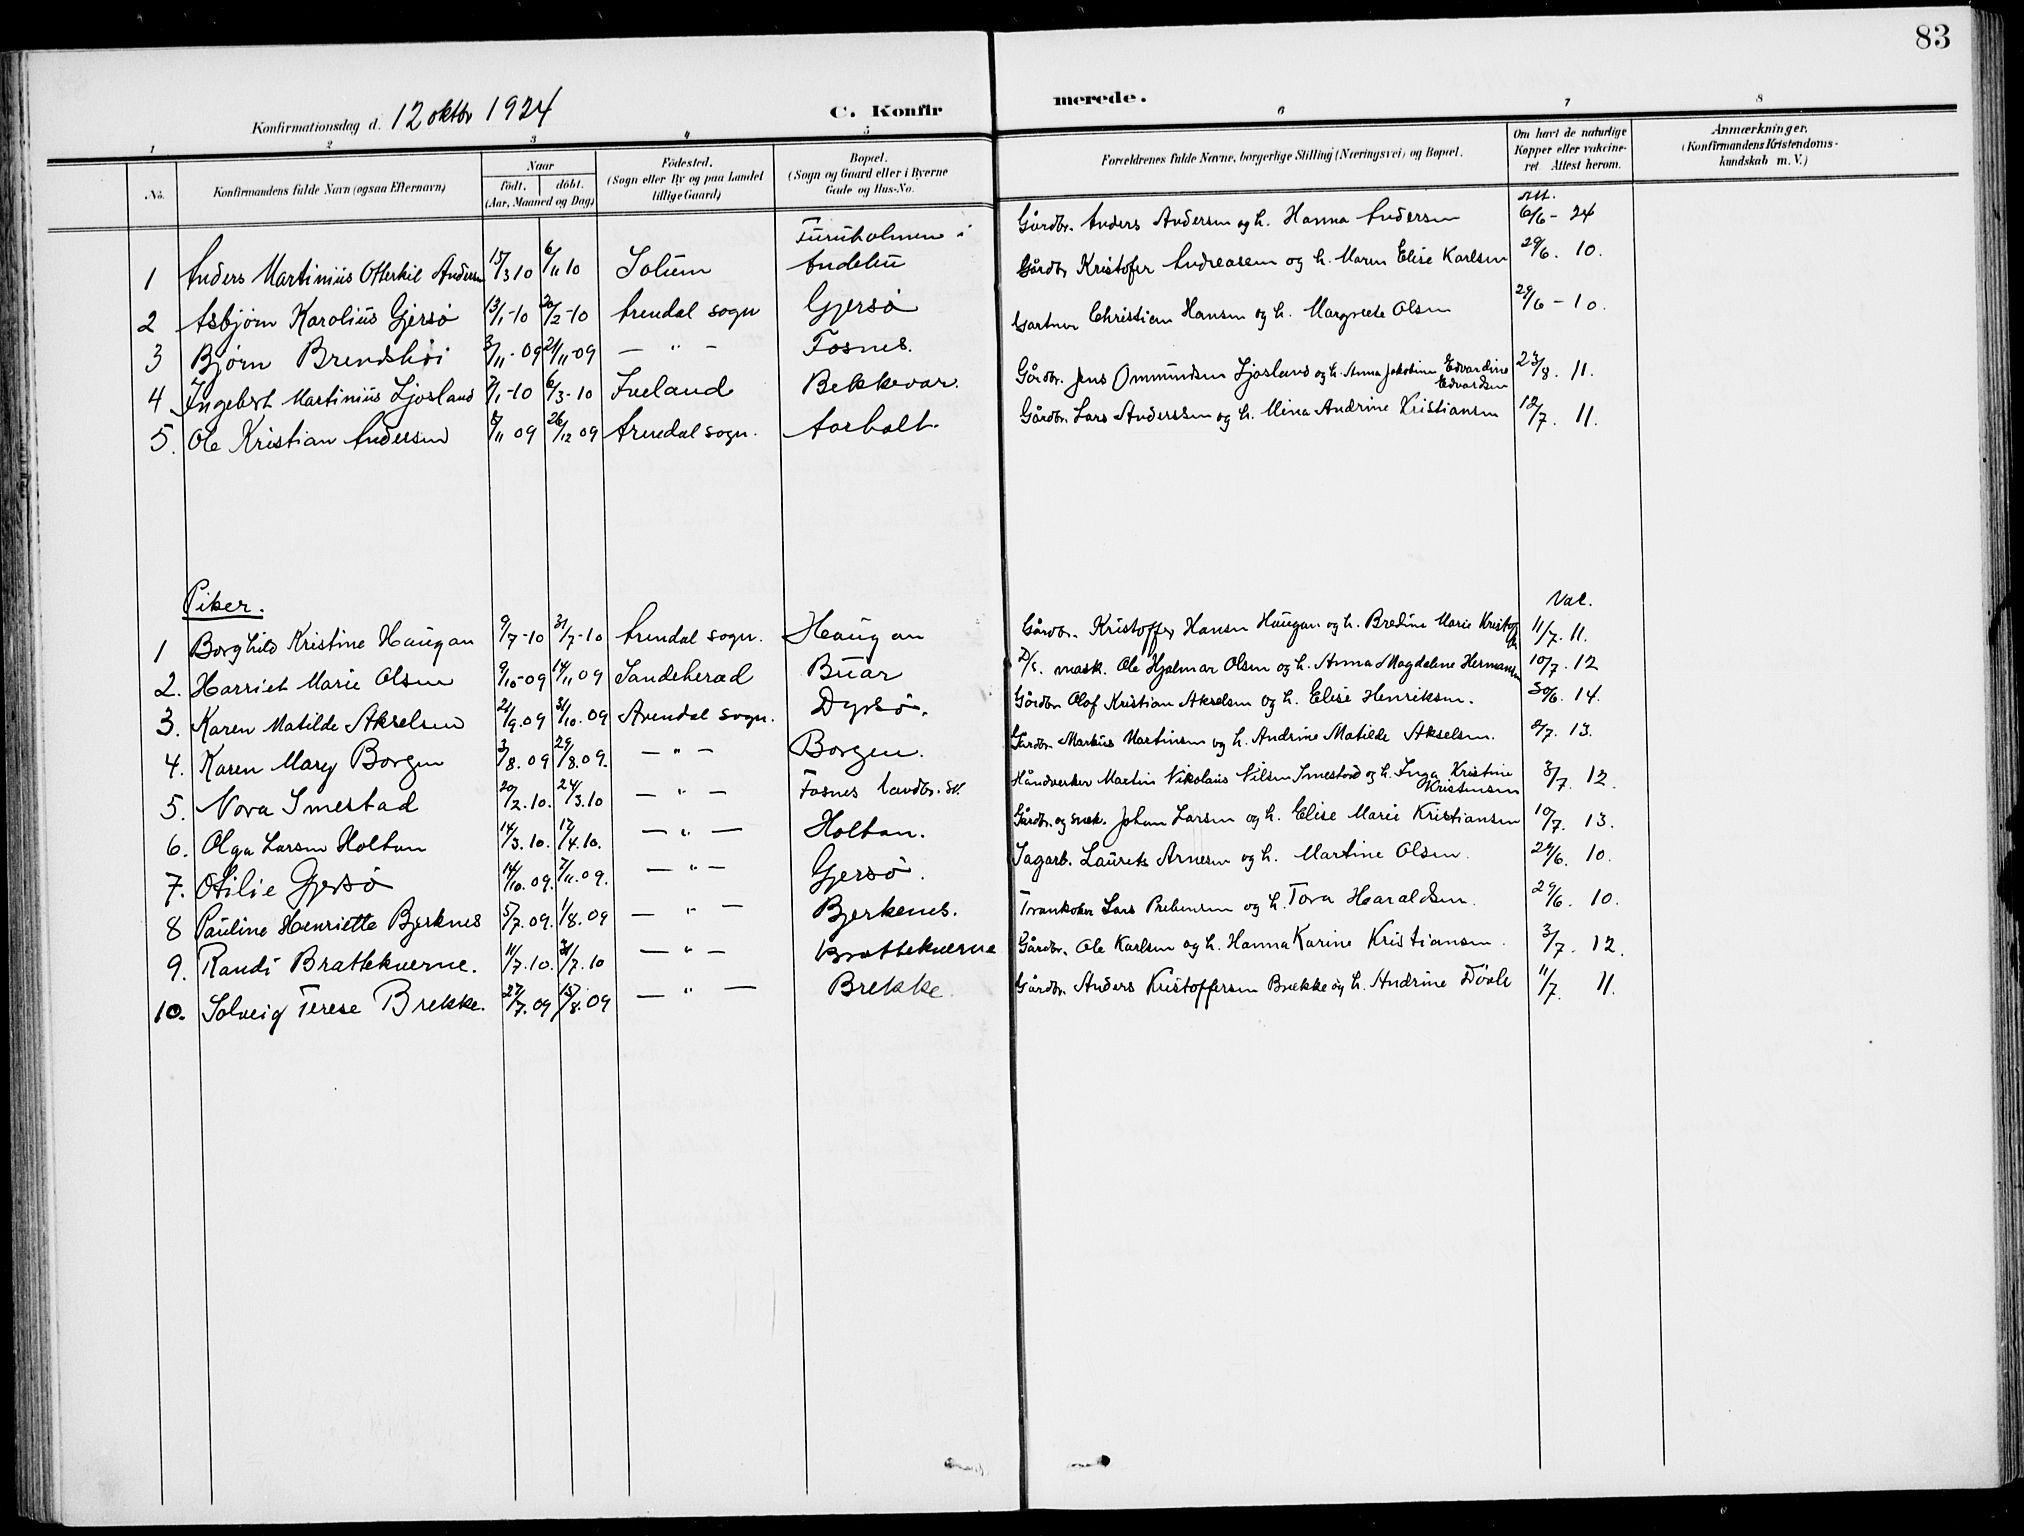 83
Konfirmationsdag d. 12 oktbr 1924
C. Konfirmerede.
1 2 3 4 5 6 7 8
No. Konfirmandens fulde Navn (ogsaa Efternavn) Naar født. døbt. (Aar, Maaned og Dag) Fødested. (Sogn eller By og paa Landet tillige Gaard) Bopæl. (Sogn og Gaard eller i Byerne Gade og Hus-No. Forældrenes fulde Navne, borgerlige Stilling (Næringsvei) og Bopæl. Om havt de naturlige Kopper eller vakcineret Attest herom. Anmærkninger. (Konfirmandens Kristendomskundskab m. V.)
1 Anders Martinius Otterkil Andersen 15/3 10 6/11 10 Solum Furuholmen i Andebu Gårdbr. Anders Andersen og h. Hanna Andersen Att. 6/6 - 24
2 Asbjørn Karolius Gjersø 13/1-10 20/2-10 Arendal sogn Gjersø Gårdbr Kristofer Andreasen og h. Maren Elise Karlsen 29/6. 10.
3 Bjørn Brendshøi 3/11-09 21/11-09 — " — Fosnes. Gartner Christian Hansen og h. Margrete Olsen 29/6 - 10.
4 Ingebert Martinius Ljosland 7/1-10 6/3-10 Iveland Bekkevar. Gårdbr. Jens Ommundsen Ljosland og h. Anna Jakobine Edvardine Edvardsen 23/8. 11.
5. Ole Kristian Andersen 8/11 09 26/12 09 Arendal sogn. Aarholt. Gårdbr. Lars Anderssen og h. Mina Andrine Kristiansen 12/7. 11.
Piker.
Vac.
1 Borghild Kristine Haugan 9/7-10 31/7-10 Arendal sogn. Haugan Gårdbr. Kristoffer Hansen Haugan og h. Bredine Marie 11/7. 11.
2. Harriet Marie Olsen 9/10-09 14/11 09 Sandeherad Buar mask. Ole Hjalmar Olsen og h. Anna Magdalene Hermansen 10/7. 12
3. Karen Matilde Akselsen 21/9.09 31/10.09 Arendal sogn. Dyrsø. Gårdbr Olof Kristian Akselsen og h. Elise Henriksen. 30/6. 14.
4. Karen Mary Borgen 3/8.09 29/8.09. — " — Borgen. Gårdbr. Markus Martinsen og h. Andrine Matilde Akselsen. 8/7. 13.
5. Nora Smestad 20/2.10. 24/3.10 — " — Fosnes landbr. sk. Håndverker Martin Nikolais Nilsen Smestad og h. Inga Kristine Kristensen 3/7. 12.
6. Olga Larsen Holtan 14/3.10. 17/4.10. — " — Holtan. Gårdbr. og snek. Johan Larsen og h. Elise Marie Kristiansen 10/7. 13.
7. Otilie Gjersø 14/10.09. 7/11.09. — " — Gjersø. Sagarb. Laurits Arnesen og h. Martine Olsen. 29/6. 10.
8 Pauline Henriette Bjerknes 5/7.09. 1/8.09 — " — Bjerkenes. Trankoker Lars Prebensen og h. Tora Haraldsen. 29/6. 10.
9. Randi Brattekverne. 11/7.10. 31/7.10 — " — Brattekverne Gårdbr. Ole Karlsen og h. Hanna Karine Kristiansen. 3/7. 12.
10. Solveig Terese Brekke. 27/7.09 15/8.09 — " — Brekke. Gårdbr. Anders Kristoffersen Brekke og h. Andrine Døvle 11/7. 11.